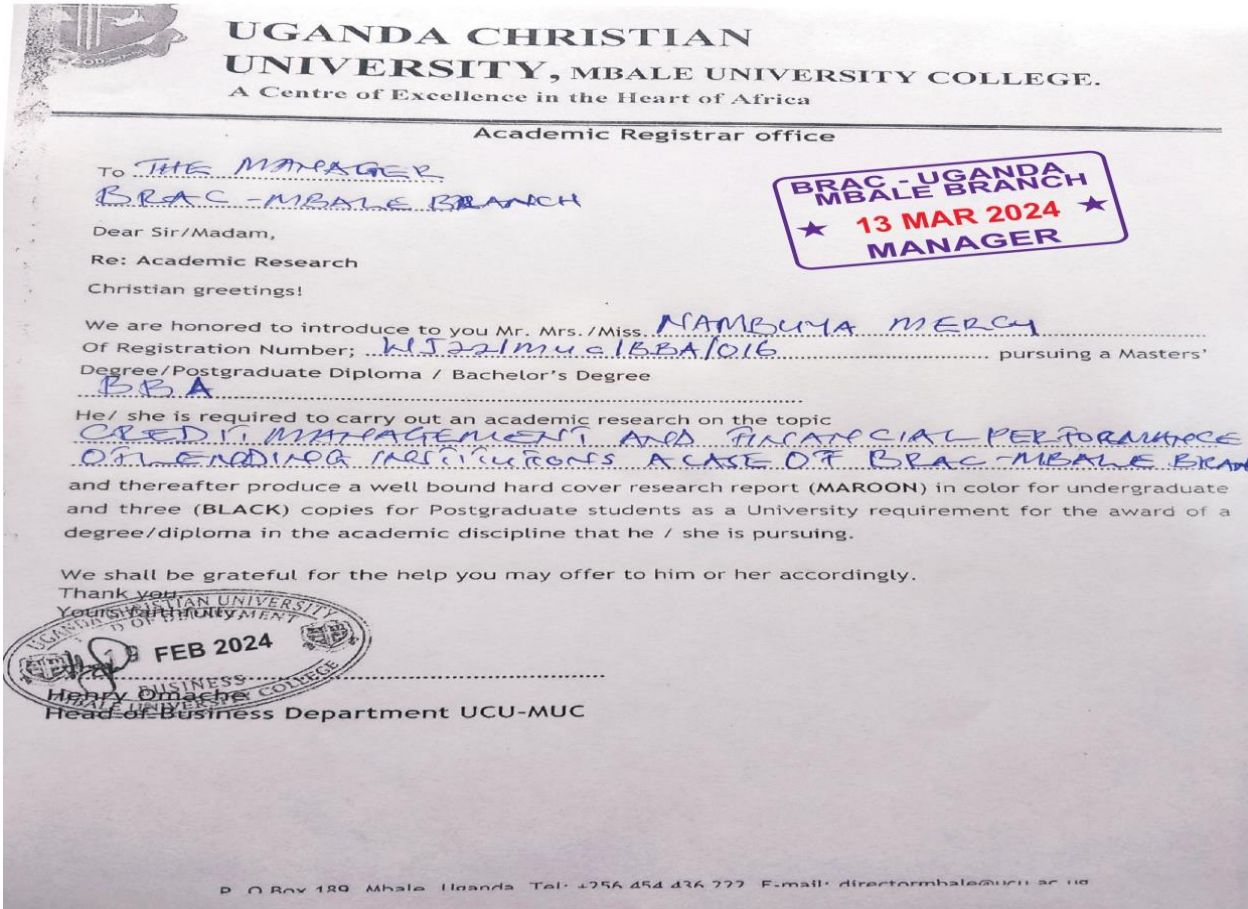 UGANDA CHRISTIAN
UNIVERSITY, MBALE UNIVERSITY COLLEGE.
A Centre of Excellence in the Heart of Africa
Academic Registrar office
To THE MANAGER
BRAC - MBALE BRANCH
BRAC - UGANDA
MBALE BRANCH
★ 13 MAR 2024 ★
MANAGER
Dear Sir/Madam,
Re: Academic Research
Christian greetings!
We are honored to introduce to you Mr. Mrs. /Miss. NAMBUYA MERCY
Of Registration Number; WJ22/muc/BBA/016 pursuing a Masters'
Degree/Postgraduate Diploma / Bachelor's Degree
BBA
He/ she is required to carry out an academic research on the topic
CREDIT MANAGEMENT AND FINANCIAL PERFORMANCE
OF LENDING INSTITUTIONS A CASE OF BRAC - MBALE BRAN
and thereafter produce a well bound hard cover research report (MAROON) in color for undergraduate
and three (BLACK) copies for Postgraduate students as a University requirement for the award of a
degree/diploma in the academic discipline that he / she is pursuing.
We shall be grateful for the help you may offer to him or her accordingly.
Thank you,
Yours faithfully
UGANDA CHRISTIAN UNIVERSITY
OF DEPARTMENT
FEB 2024
BUSINESS
MBALE UNIVERSITY COLLEGE
Henry Omache
Head of Business Department UCU-MUC
P. O Box 189 Mbale Uganda Tel: +256 454 436 777 E-mail: directormbale@ucu.ac.ug